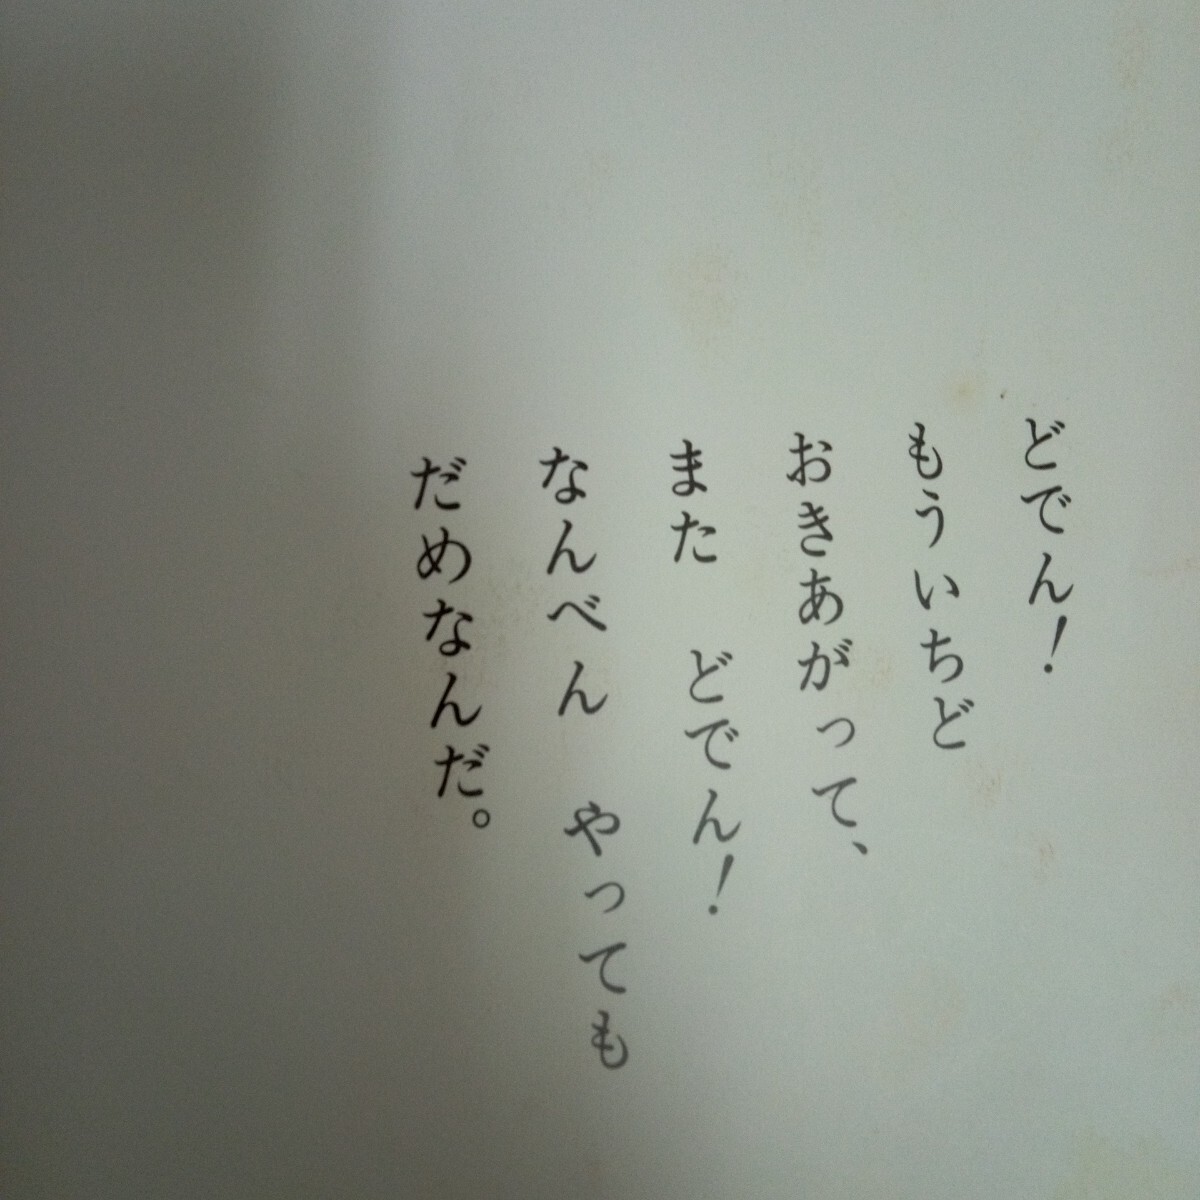 どでん！
もういちど
おきあがって、
また　どでん！
なんべん　やっても
だめなんだ。